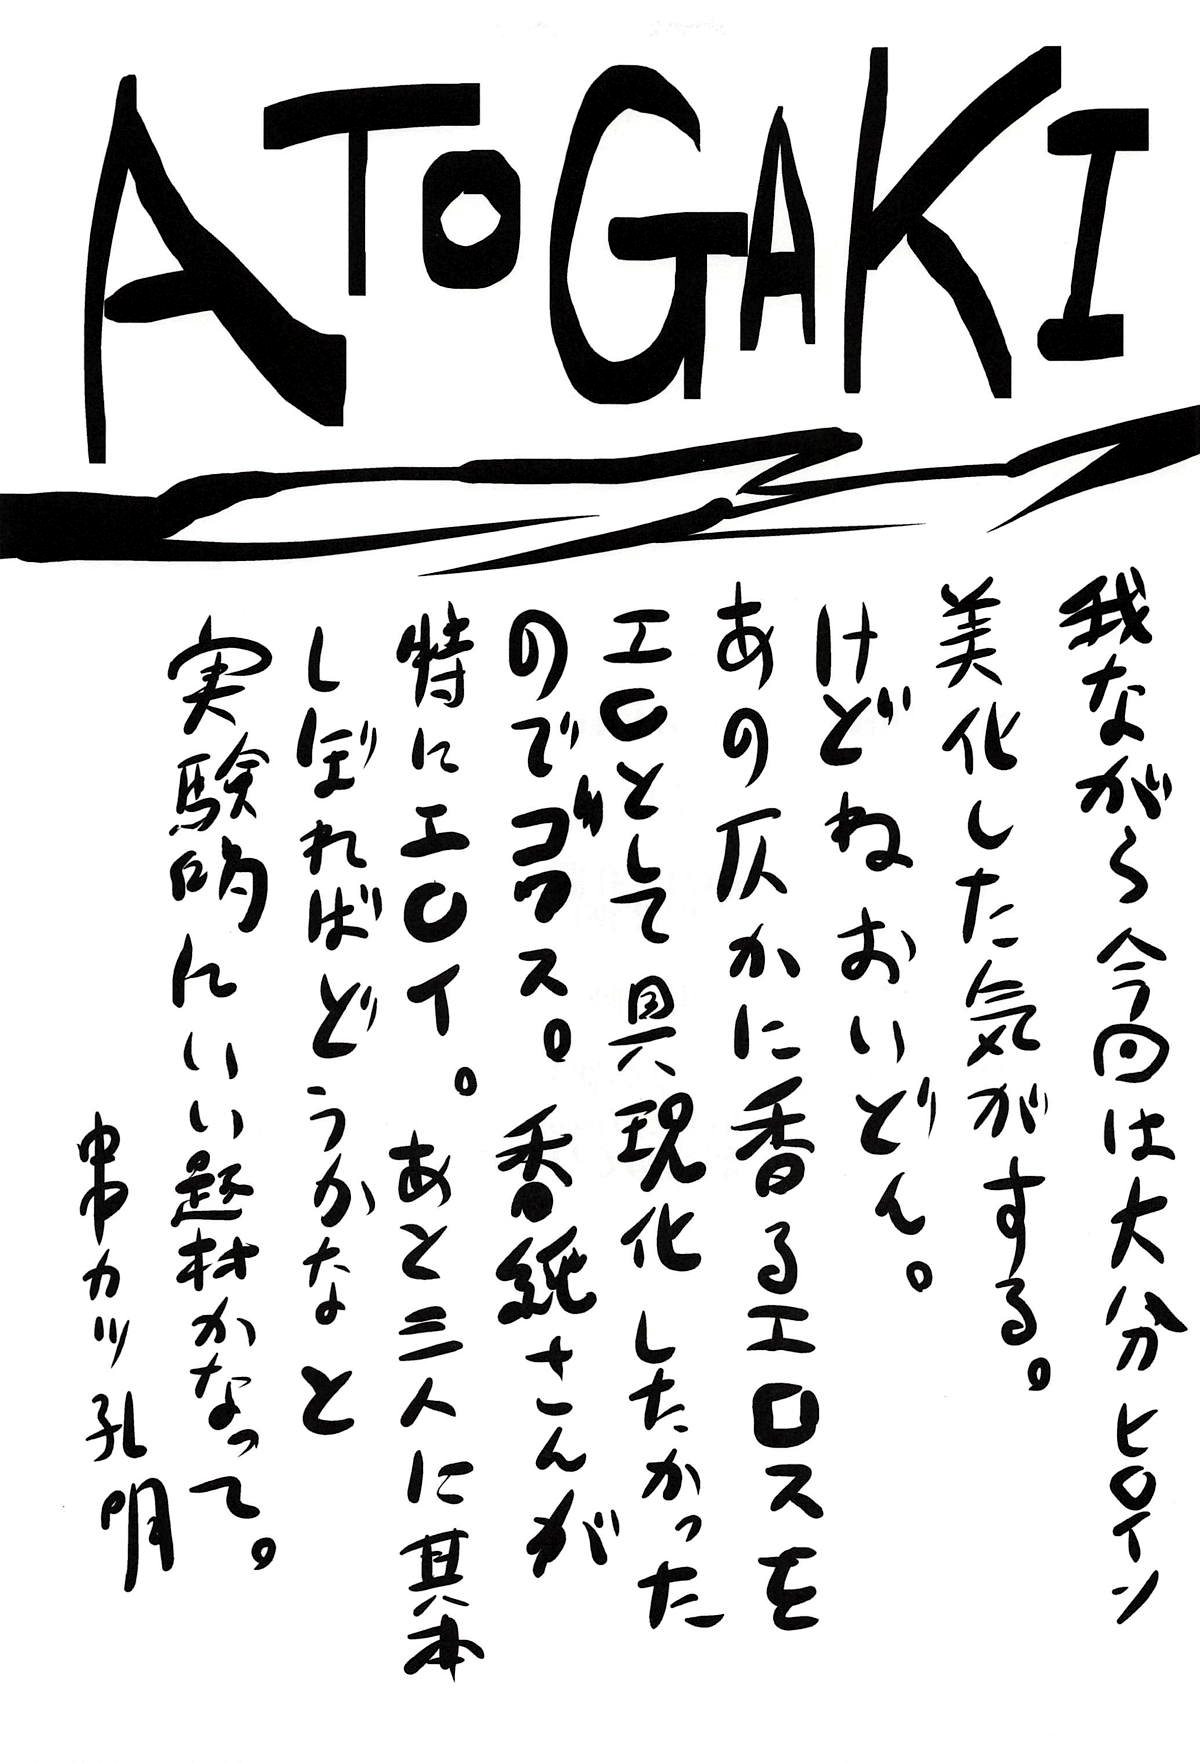 ATOGAKI
我ながら今回は大分ヒロイン
美化した気がする。
けどねおいどん。
あの仄かに香るエロスを
エロとして具現化したかった
のでゴワス。 香紙さんが
特にエロイ。 あと三人に基本
しぼればどうかなと
実験的にいい題材かなって。
串カツ孔明